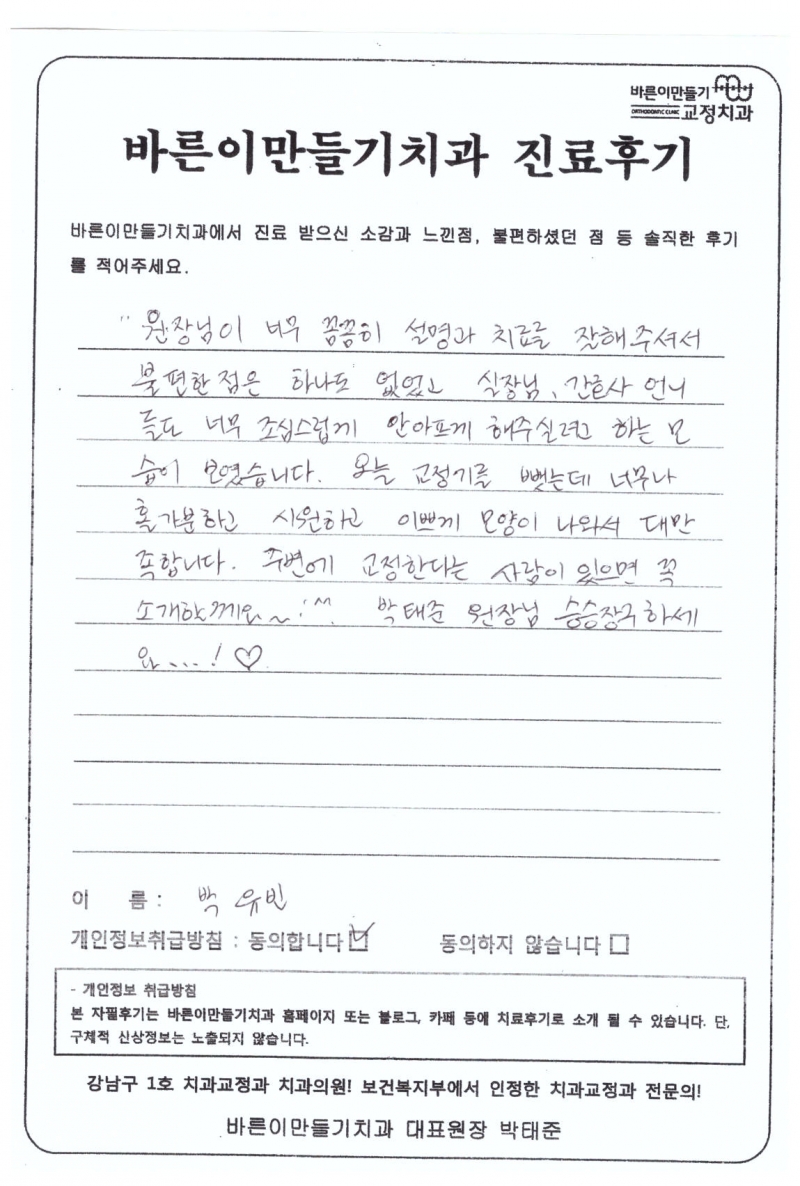 바른이만들기
ORTHODONTIC CLINIC 교정치과
바른이만들기치과 진료후기
바른이만들기치과에서 진료 받으신 소감과 느낀점, 불편하셨던 점 등 솔직한 후기
를 적어주세요.
" 원장님이 너무 꼼꼼히 설명과 치료를 잘해주셔서
불편한점은 하나도 없었고 실장님, 간호사 언니
들도 너무 조심스럽게 안아프게 해주실려고 하는 모
습이 보였습니다. 오늘 교정기를 뺐는데 너무나
홀가분하고 시원하고 이쁘게 모양이 나와서 대만
족합니다. 주변에 교정한다는 사람이 있으면 꼭
소개할께요~!^^. 박태준 원장님 승승장구하세
요....! ♡
이 름 : 박유빈
개인정보취급방침 : 동의합니다 ☑ 동의하지 않습니다 □
- 개인정보 취급방침
본 자필후기는 바른이만들기치과 홈페이지 또는 블로그, 카페 등에 치료후기로 소개 될 수 있습니다. 단,
구체적 신상정보는 노출되지 않습니다.
강남구 1호 치과교정과 치과의원! 보건복지부에서 인정한 치과교정과 전문의!
바른이만들기치과 대표원장 박태준